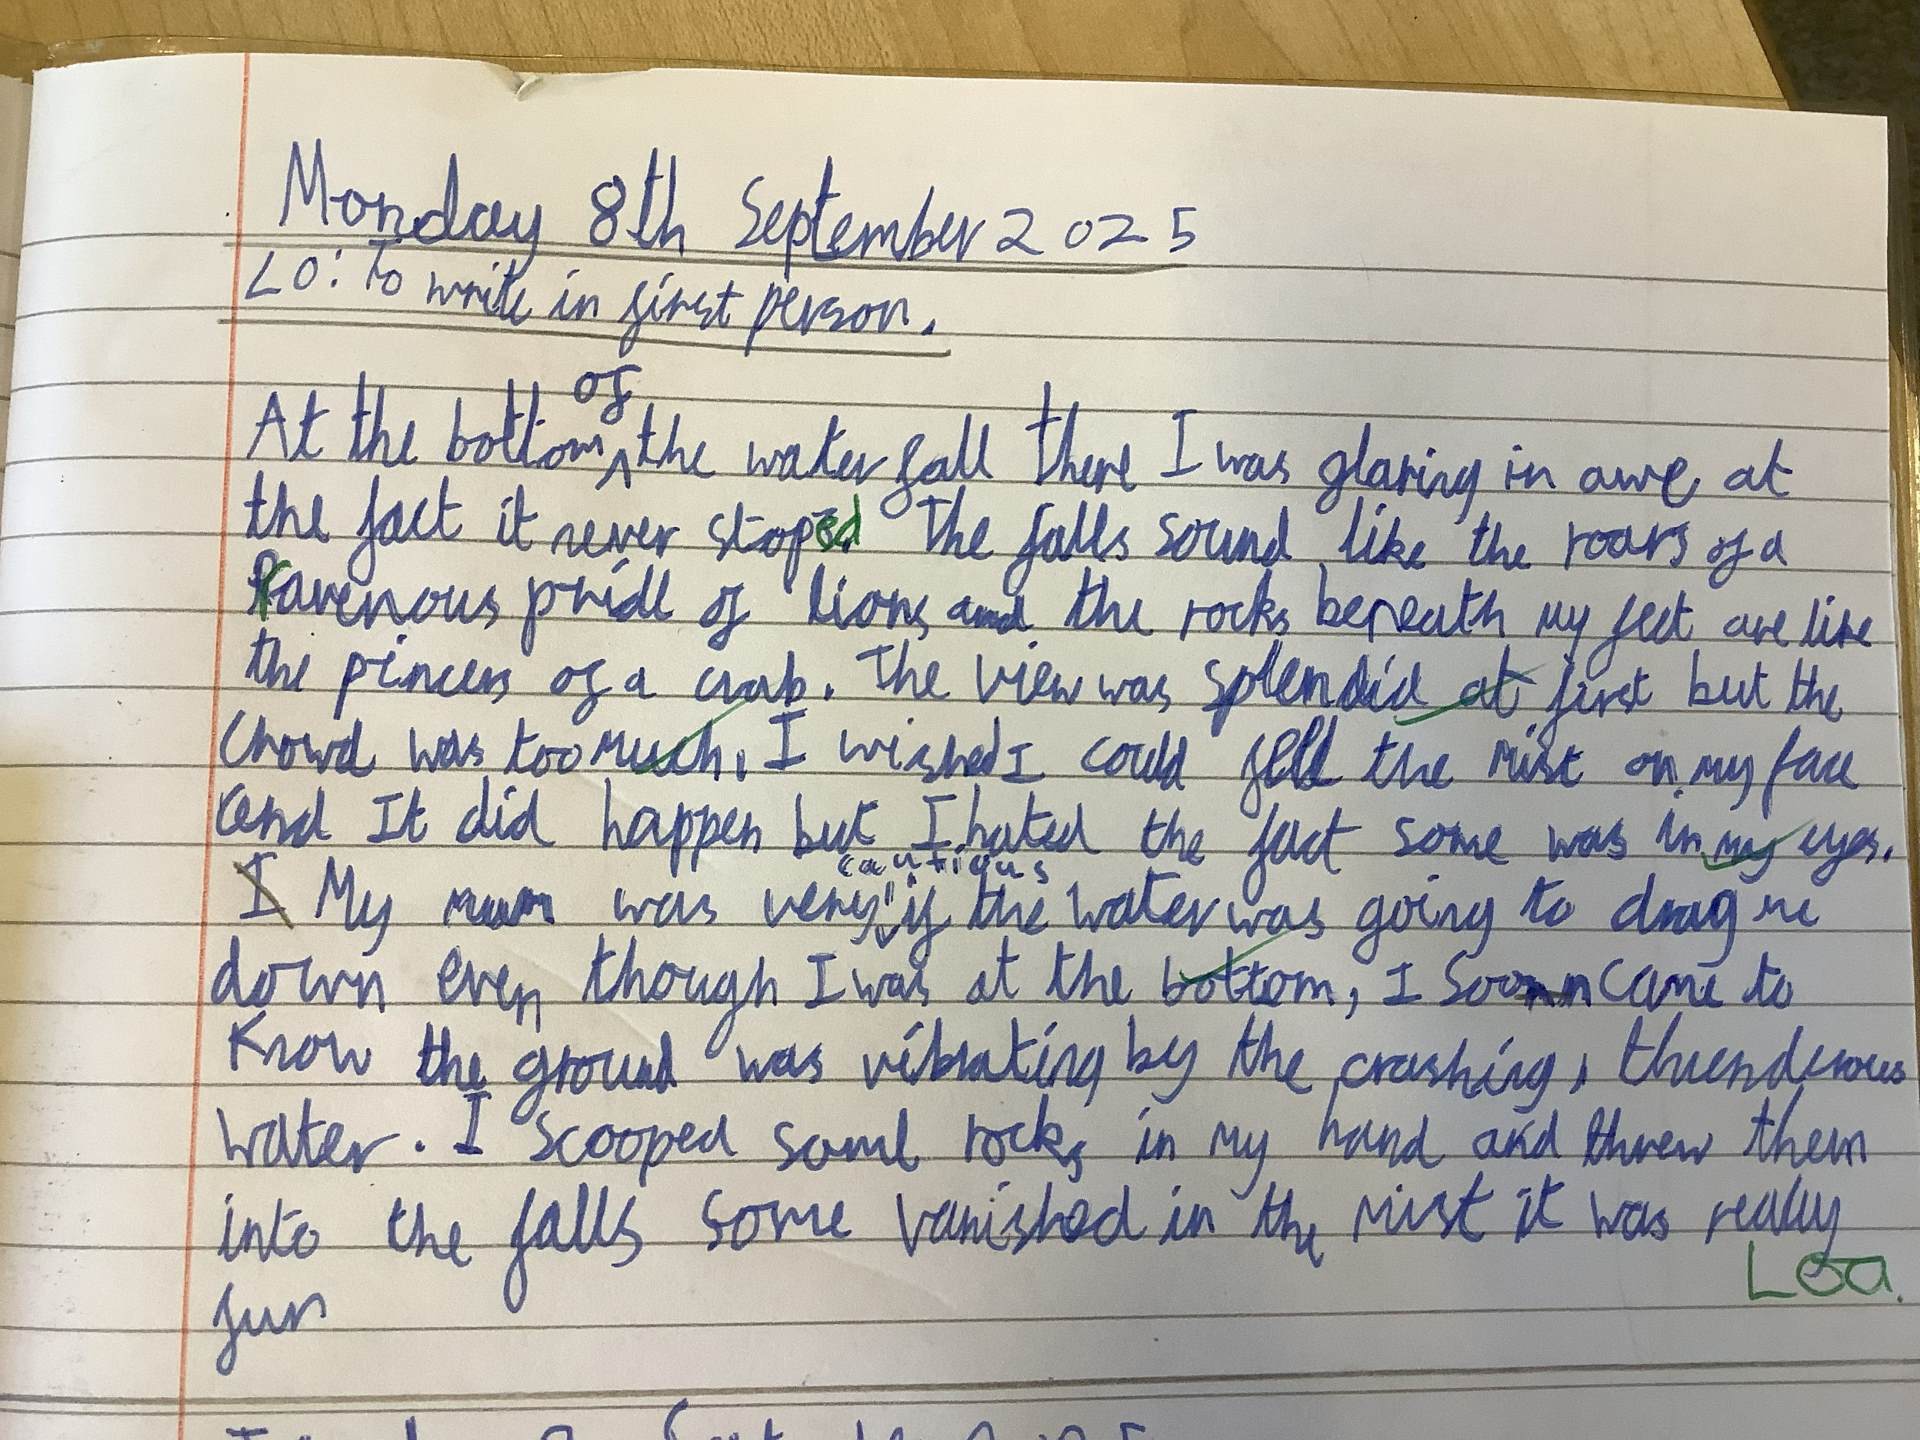 Monday 8th September 2025
LO: To write in first person.
of
At the bottom ^ the waterfall there I was glaring in awe at
the fact it never stoped. The falls sound like the roars of a
ravenous pride of lions and the rocks beneath my feet are like
the pincers of a crab. The view was splendid at first but the
Crowd was too much, I wished I could fell the mist on my face
and It did happen but I hated the fact some was in my eyes.
cautious
I My mum was very if the water was going to drag me
down even though I was at the bottom, I soon came to
Know the ground was vibrating by the crashing, thunderous
water. I scooped some rocks in my hand and threw them
into the falls some vanished in the mist it was really
LOa.
fun